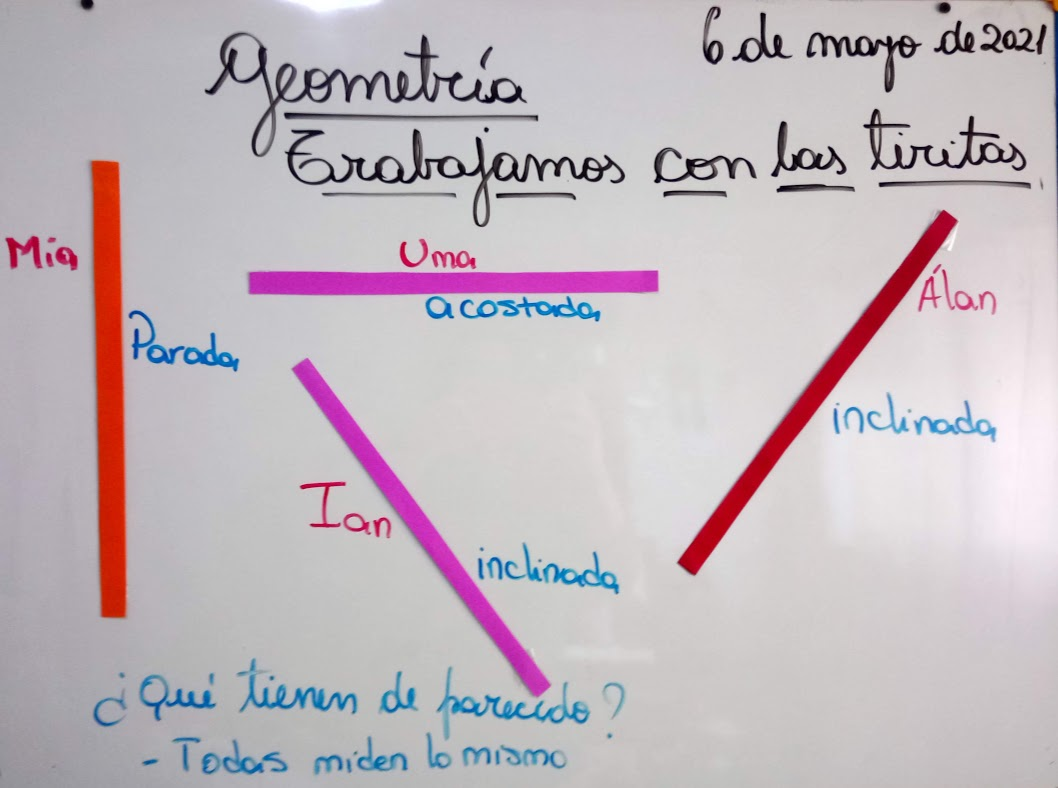 6 de mayo de 2021
Geometría
Trabajamos con las tiritas
Mia
Uma
acostada
Álan
Parada
inclinada
Ian
inclinada
¿Qué tienen de parecido?
- Todas miden lo mismo